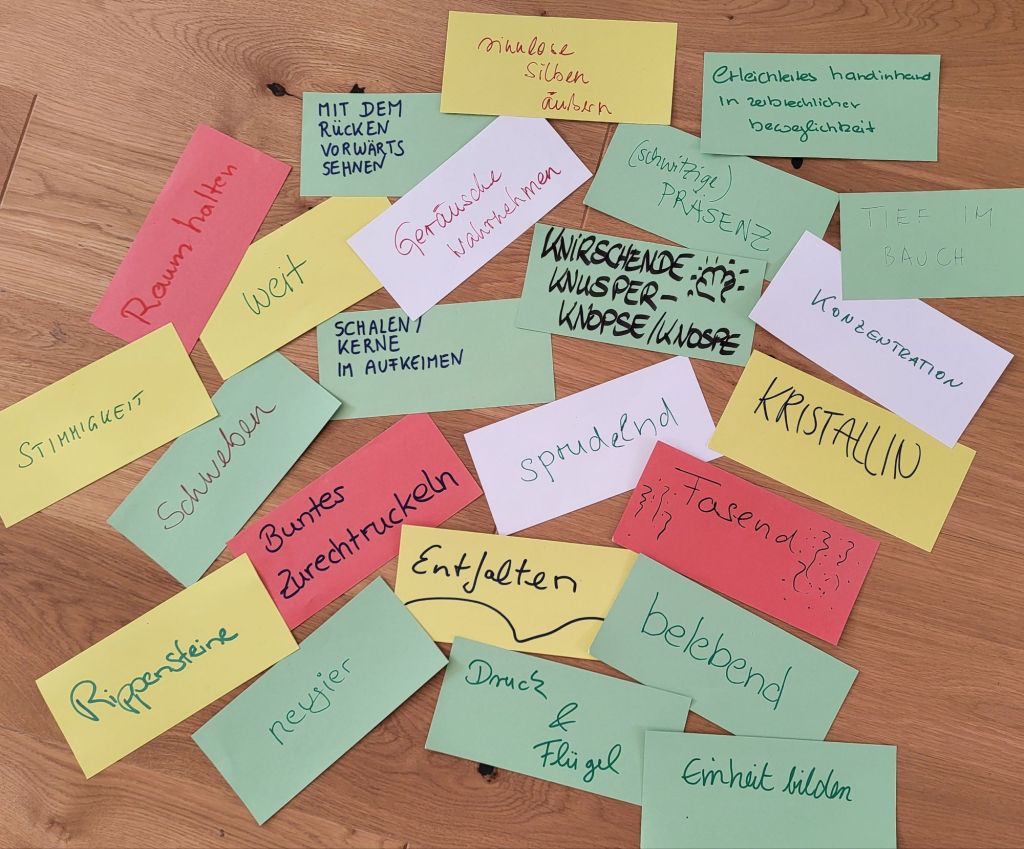 sinnlose
Silben
äußern
erleichtertes handinhand
in zerbrechlicher
beweglichkeit
MIT DEM
RÜCKEN
VORWÄRTS
SEHNEN
(schwitzige)
PRÄSENZ
Raum halten
Geräusche
wahrnehmen
TIEF IM
BAUCH
weit
KNIRSCHENDE
KNUSPER-
KNOPSE/KNOSPE
KONZENTRATION
SCHALEN/
KERNE
IM AUFKEIMEN
STIMMIGKEIT
Schweben
sprudelnd
KRISTALLIN
Buntes
Zurechtruckeln
Fasend
Entfalten
Rippensteine
neugier
belebend
Druck
&
Flügel
Einheit bilden